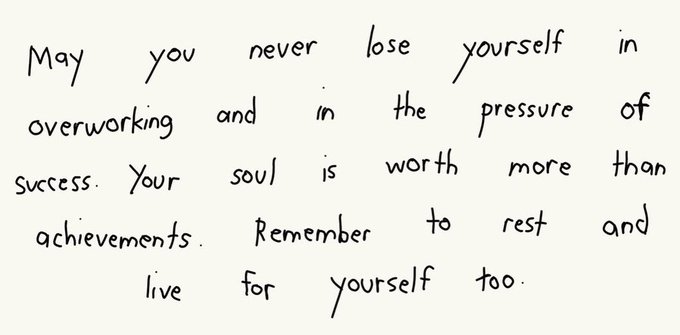 May you never lose yourself in
overworking and in the pressure of
success. Your soul is worth more than
achievements. Remember to rest and
live for yourself too.